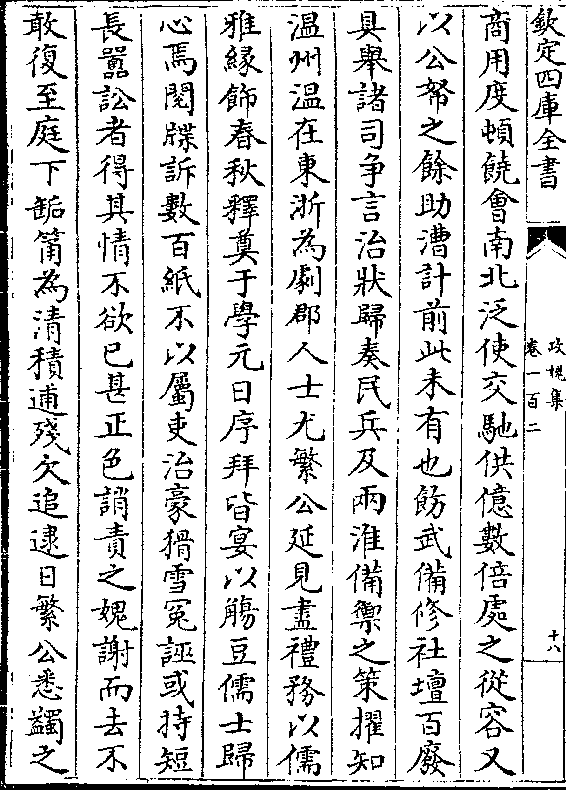 欽定四庫全書
攻媿集
卷一百二
十八
商用度頓饒會南北泛使交馳供億數倍處之從容又
以公帑之餘助漕計前此未有也飭武備修社壇百廢
具舉諸司争言治狀歸奏民兵及兩淮備禦之策擢知
温州温在東浙為劇郡人士尤繁公延見盡禮務以儒
雅緣飾春秋釋奠于學元日序拜皆宴以觴豆儒士歸
心焉閱牒訴數百紙不以屬吏治豪猾雪冤誣或持短
長嚚訟者得其情不欲已甚正色誚責之媿謝而去不
敢復至庭下缿筩為清積逋殘欠追逮日繁公悉蠲之